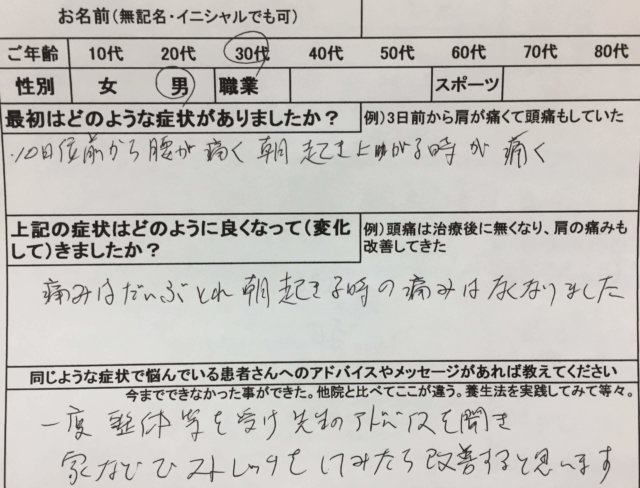 お名前(無記名・イニシャルでも可)
ご年齢 10代 20代 30代 40代 50代 60代 70代 80代
性別 女 男 職業 スポーツ
最初はどのような症状がありましたか? 例)3日前から肩が痛くて頭痛もしていた
10日位前から腰が痛く 朝起き上がる時が痛く
上記の症状はどのように良くなって(変化 例)頭痛は治療後に無くなり、肩の痛みも
して)きましたか? 改善してきた
痛みはだいぶとれ 朝起きる時の痛みはなくなりました
同じような症状で悩んでいる患者さんへのアドバイスやメッセージがあれば教えてください
今までできなかった事ができた。他院と比べてここが違う。養生法を実践してみて等々。
一度 整体等を受け 先生のアドバイスを聞き
家などでストレッチをしてみたら改善すると思います